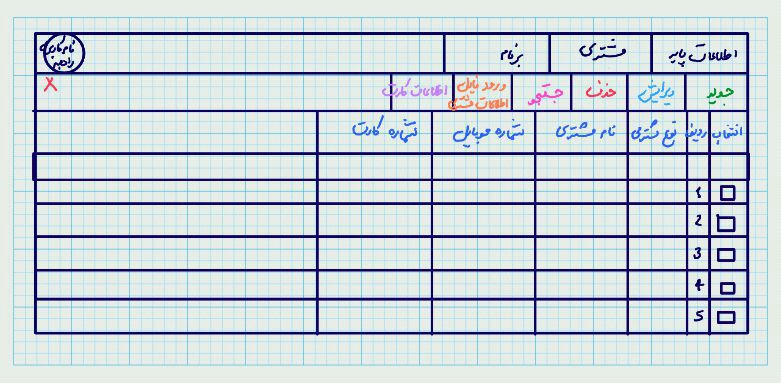 اطلاعات پایه مشتری برنام نام کاربری
راهبر
جدید ویرایش حذف جستجو ورود فایل اطلاعات کارت X
اطلاعات مشتری
انتخاب ردیف نوع مشتری نام مشتری شماره موبایل شماره کارت
1
2
3
4
5